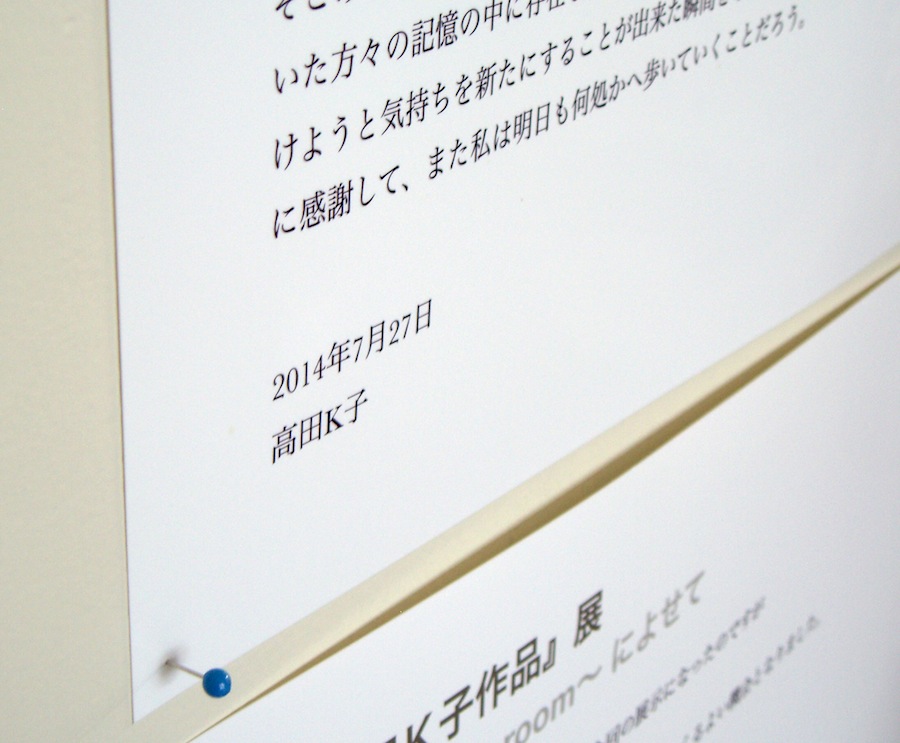 いた方々の記憶の中に存在
けようと気持ちを新たにすることが出来た瞬間
に感謝して、また私は明日も何処かへ歩いていくことだろう。
2014年7月27日
高田K子
K子作品』展
room〜によせて
の展示になったのですが
よい機会となりました。